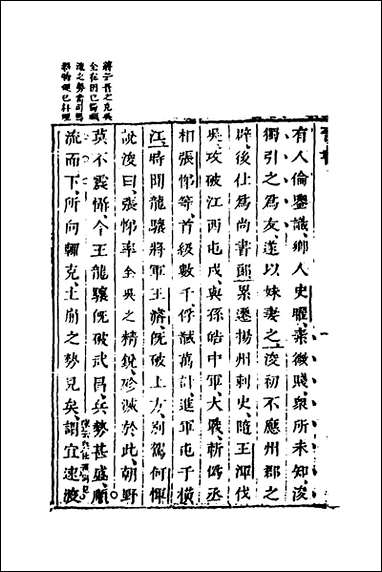 有人倫鑒識、鄉人史曜、素微賤、衆所未知、浚
獨引之爲友、遂以妹妻之、浚初不應州郡之
辟、後仕爲尚書郎、累遷揚州刺史、隨王渾伐
吳、攻破江西屯戍、與孫皓中軍大戰、斬僞丞
相張悌等、首級數千、俘馘萬計、進軍屯于橫
江、時聞龍驤將軍王濬、旣破上方、別駕何惲
說浚曰、張悌率全吳之精銳、殄滅於此、朝野
莫不震懾、今王龍驤旣破武昌、兵勢甚盛、順
流而下、所向輒克、土崩之勢見矣、謂宜速渡